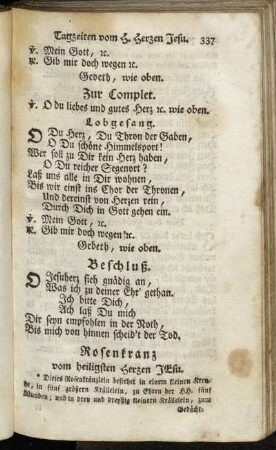 Tagzeiten vom H. Herzen Jesu. 337
℣. Mein Gott, ꝛc.
℟. Gib mir doch wegen ꝛc.
Gebeth, wie oben.
Zur Complet.
℣. O du liebes und gutes Herz ꝛc. wie oben.
Lobgesang.
O Du Herz, Du Thron der Gaben,
O Du schöne Himmelsport!
Wer soll zu Dir kein Herz haben,
O Du reicher Segenort?
Laß uns alle in Dir wohnen,
Bis wir einst ins Chor der Thronen,
Und dereinst von Herzen rein,
Durch Dich in Gott gehen ein.
℣. Mein Gott, ꝛc.
℟. Gib mir doch wegen ꝛc.
Gebeth, wie oben.
Beschluß.
O Jesuherz sieh gnädig an,
Was ich zu deiner Ehr' gethan.
Ich bitte Dich,
Ach laß Du mich
Dir seyn empfohlen in der Noth,
Bis mich von hinnen scheid't der Tod.
Rosenkranz
vom heiligsten Herzen JEsu.
* Dieses Rosenkränzlein bestehet in einem kleinen Kreu-
ze, in fünf größern Krällelein, zu Ehren der HH. fünf
Wunden; und in drey und dreyßig kleinern Krällelein, zum
Gedächt-